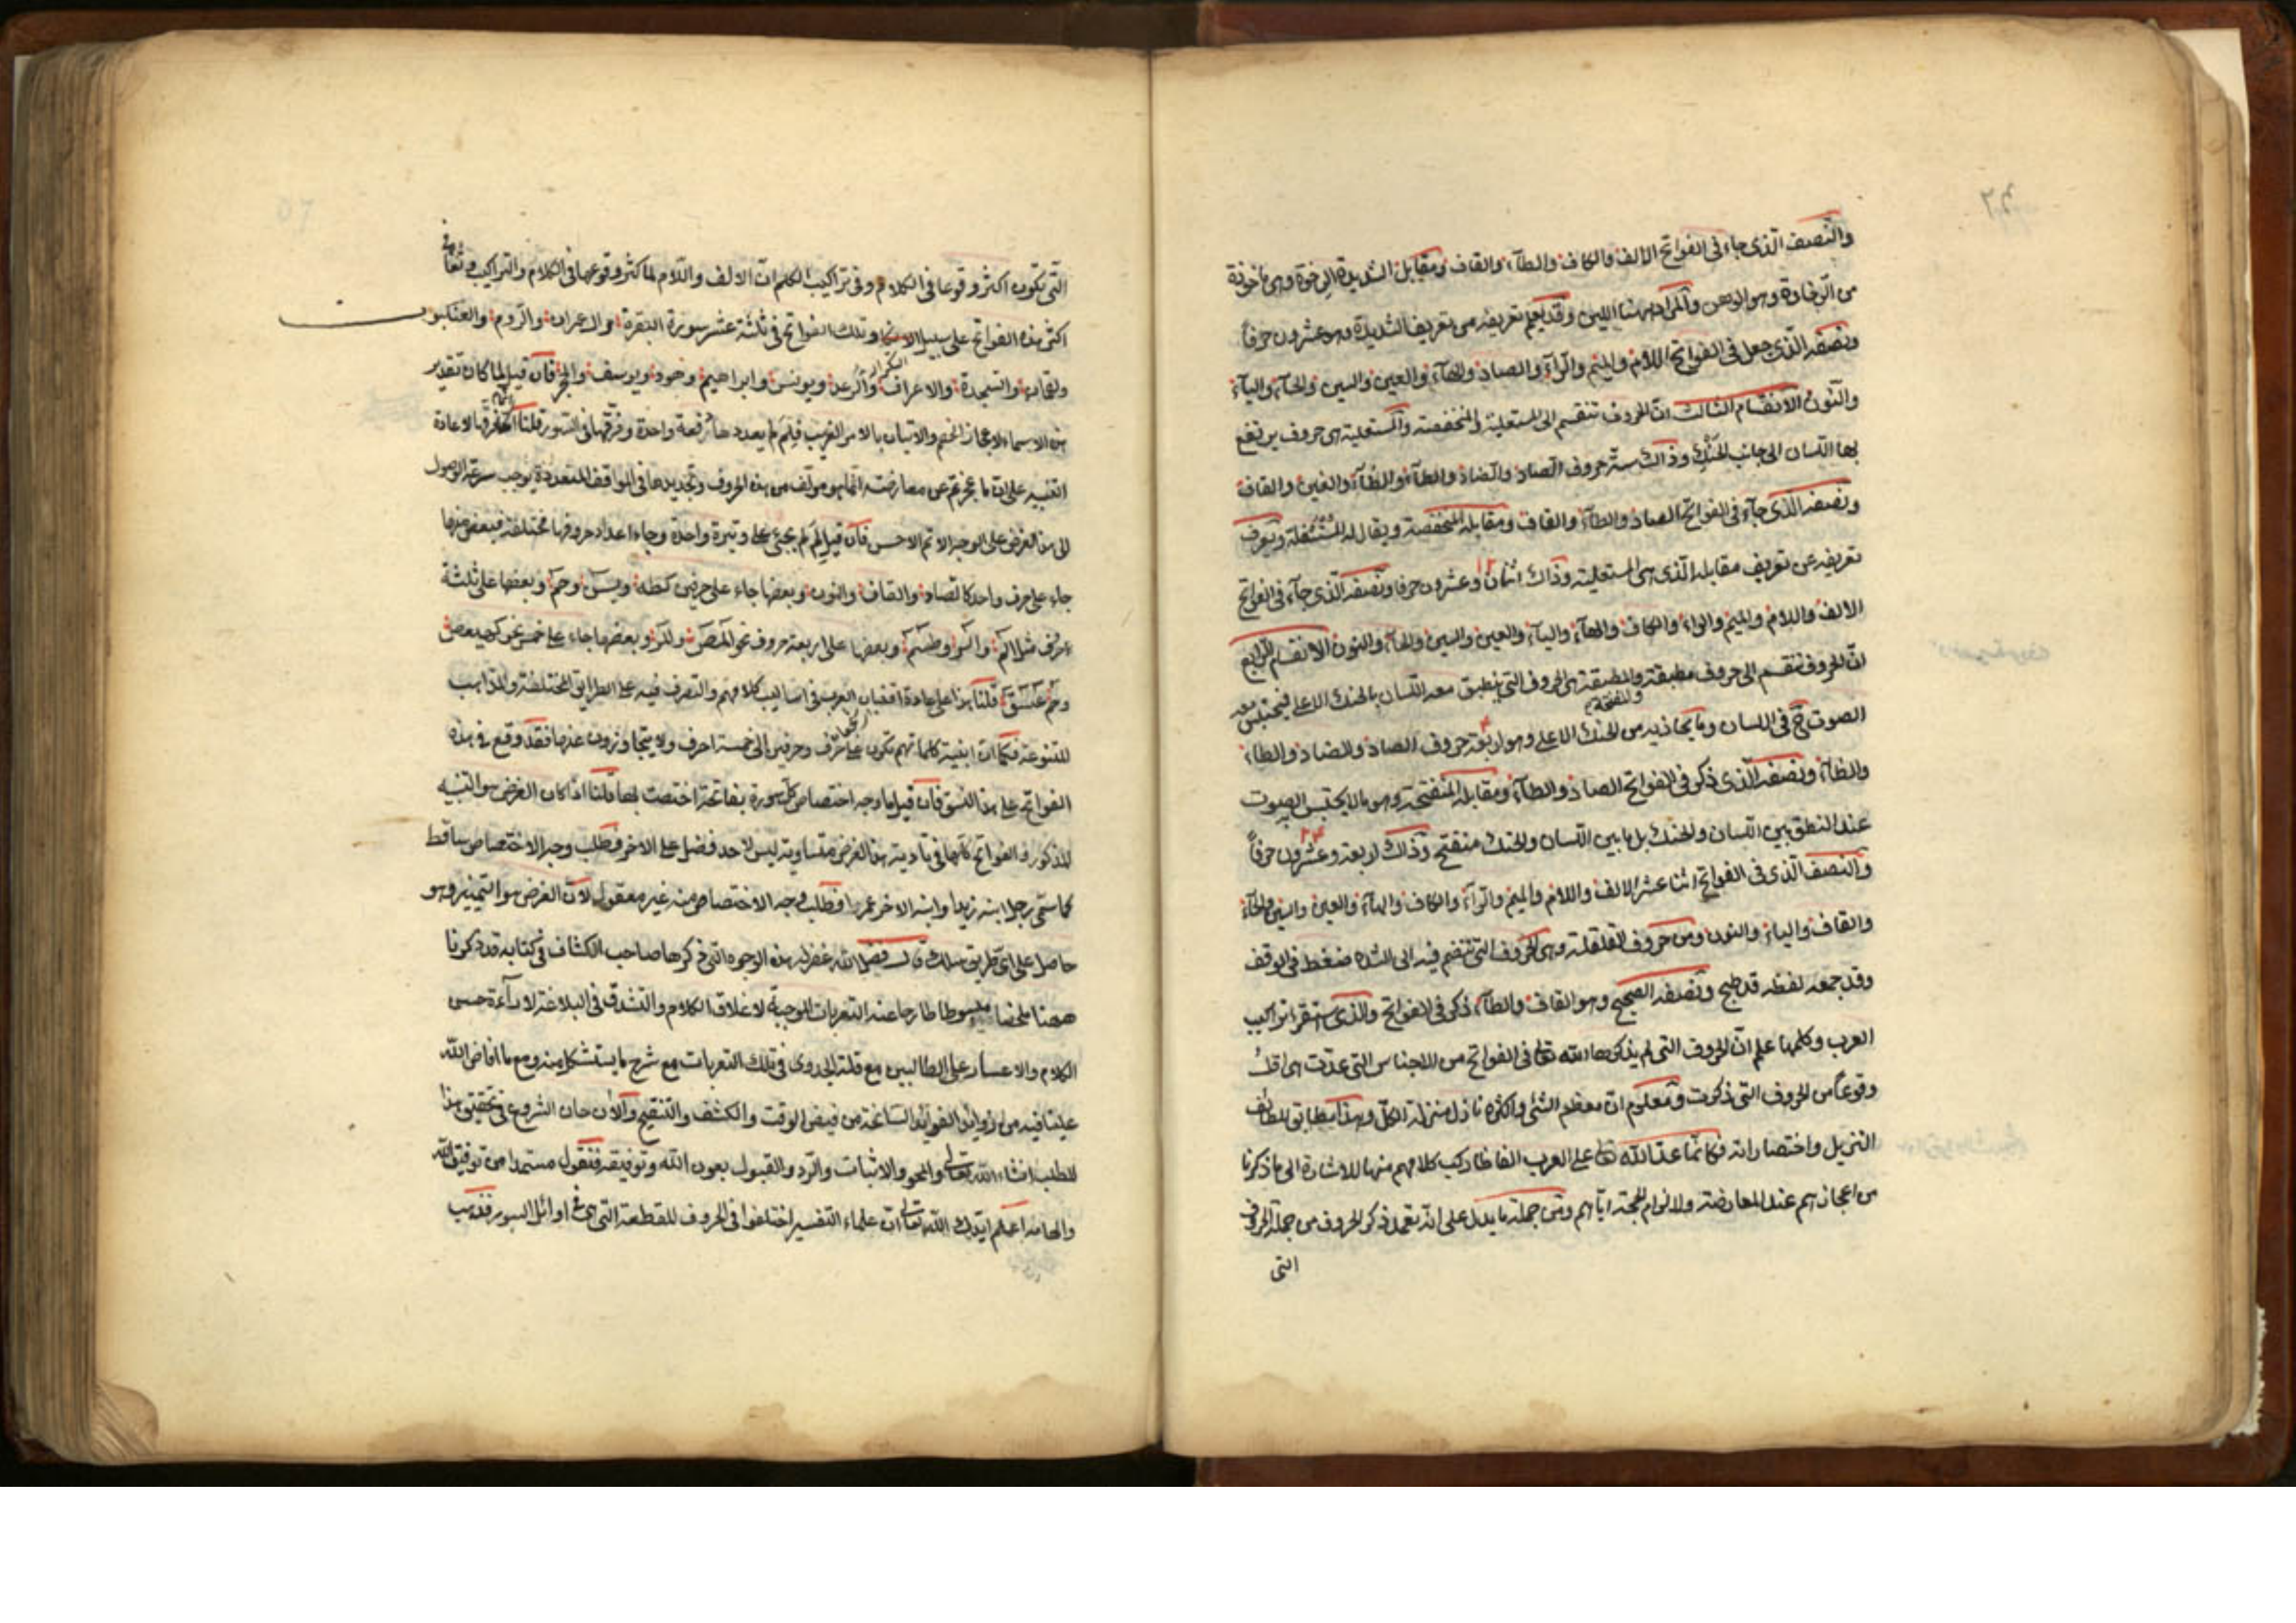 والنصف الذى جاء فى الفواتح الالف والكاف والطآء والقاف ومقابل الشديدة الرخوة وهى مأخوذة
من الرخاوة وهو الوهن والمراد ههنا اللين وقد يعلم تعريفه من تعريف الشديدة وهو عشرون حرفاً
ونصفه الذى جعل فى الفواتح اللام والميم والرآء والصاد والهآء والعين والسين والحآء واليآء
والنون الانقسام الثالث انّ الحروف تنقسم الى المستعلية والمنخفضة والمستعلية هى حروف يرتفع
بها اللسان الى جانب الحنك وذاك ستة حروف الصاد والضاد والطآء والظآء والغين والقاف
ونصفه الذى جآء فى الفواتح الصاد والطآء والقاف ومقابله المنخفضة ويقال له المستفلة ويعرف
تعريفه عن تعريف مقابله الذى هى المستعلية وذاك اثنان وعشرون حرفا ونصفه الذى جآء فى الفواتح
الالف واللام والميم والراء والكاف والهآء واليآء والعين والسين والحآء والنون الانقسام الرابع
انّ الحروف تنقسم الى حروف مطبقة والمنفتحة والمطبقة هى الحروف التى ينطبق معه اللسان بالحنك الاعلى فيحتبس معه
الصوت ح فى اللسان وما يحاذيه من الحنك الاعلى وهو اربعة حروف الصاد والضاد والطاء
والظآء ونصفه الذى ذكر فى الفواتح الصاد والطآء ومقابله المنفتحة وهو ما لا يحتبس الصوت
عند النطق بين اللسان والحنك بل ما بين اللسان والحنك منفتح وذاك اربعة وعشرون حرفاً
والنصف الذى فى الفواتح اثنا عشر الالف واللام والميم والرآء والكاف والهآء والعين والسين والحآء
والقاف والياء والنون ومن حروف القلقلة وهى الحروف التى تنضم فيه الى الشدة ضغط فى الوقف
وقد جمعه لفظه قد طبج ونصفه الصحيح وهو القاف والطآء ذكر فى الفواتح والذى استقرا تراكيب
العرب وكلمها علم انّ الحروف التى لم يذكرها الله تع فى الفواتح من الاجناس التى عدّت هى اقلّ
وقوعاً من الحروف التى ذكرت ومعلوم انّ معظم الشئ واكثره نازل منزلة الكلّ وهذا مطابق للطائف
التنزيل واختصاراته فكانّما عدّ الله تع على العرب الفاظا ركب كلامهم منها للاشارة الى ما ذكرنا
من اعجازهم عند المعارضة والزام الحجة اياهم ومن جملة ما يدل على انه تعمد ذكر الحروف من جملة الحروف
التى
التى تكون اكثر وقوعا فى الكلام وفى تراكيب الكلم انّ الالف واللام لما كثر وقوعها فى الكلام والتراكيب وقعا فى
اكثر هذه الفواتح على سبيل التكرار وتلك الفواتح فى ثلثة عشر سورة البقرة وال عمران والروم والعنكبوت
ولقمان والسجدة والاعراف والرعد ويونس وابراهيم وهود ويوسف والحجر فان قيل لما كان تقدير
هذه الاسماء لاعجاز الخصم والاتيان بالامر الغريب فلم لم يعددها دفعة واحدة وفرقها فى السور قلنا انما فرقها لاعادة
التنبيه على ان ما عجزتم عن معارضته انما هو مؤلف من هذه الحروف وتجديدها فى المواقف المتعددة يوجب سرعة الوصول
الى هذا الغرض على الوجه الاتم الاحسن فان قيل لم لم يجئ على وتيرة واحدة وجاء اعداد حروفها مختلفة فبعض منها
جاء على حرف واحد كالصاد والقاف والنون وبعضها جاء على حرفين كطه ويس وحم وبعضها على ثلثة
احرف مثل الم والر وطسم وبعضها على اربعة حروف نحو المص والمر وبعضها جاء على خمس نحو كهيعص
وحم عسق قلنا هذا على عادة افتنان العرب فى اساليب كلامهم والتصرف فيه على الطرايق المختلفة والمذاهب
المتنوعة فكما ان ابنية كلماتهم تكون على حرف وحرفين الى خمسة احرف ولا يتجاوزون عنها فقد وقع فى هذه
الفواتح على هذا النسق فان قيل ما وجه اختصاص كل سورة بفاتحة اختصت بها قلنا اذا كان الغرض هو التنبيه
المذكور والفواتح كلها فى تادية هذا الغرض متساوية ليس لاحد فضل على الاخر فطلب وجه الاختصاص ساقط
كما سمّى رجل ابنه زيدا وابنه الاخر عمرا فطلب وجه الاختصاص منه غير معقول لان الغرض هو التمييز وهو
حاصل على اى طريق سلك قال فضل الله غفر له هذه الوجوه التى ذكرها صاحب الكشاف فى كتابه قد ذكرنا
ههنا ملخصا مبسوطا طارحا عنه التعريات الموجبة لاغلاق الكلام والتشدق فى البلاغة لارآءة حسن
الكلام والاعسار على الطالبين مع قلة الجدوى فى تلك التعريات مع شرح ما يستشكل منه ومع ما افاض الله
علينا فيه من زوايد الفوائد السانحة من فيض الوقت والكشف والتنقيح والان حان الشروع فى تحقيق هذا
المطلب انشاء الله تعالى والمحو والاثبات والرد والقبول بعون الله وتوفيقه فنقول مستمدا من توفيق الله
والهامه اعلم ايدك الله تعالى ان علماء التفسير اختلفوا فى الحروف المقطعة التى هى فى اوائل السور فذهب